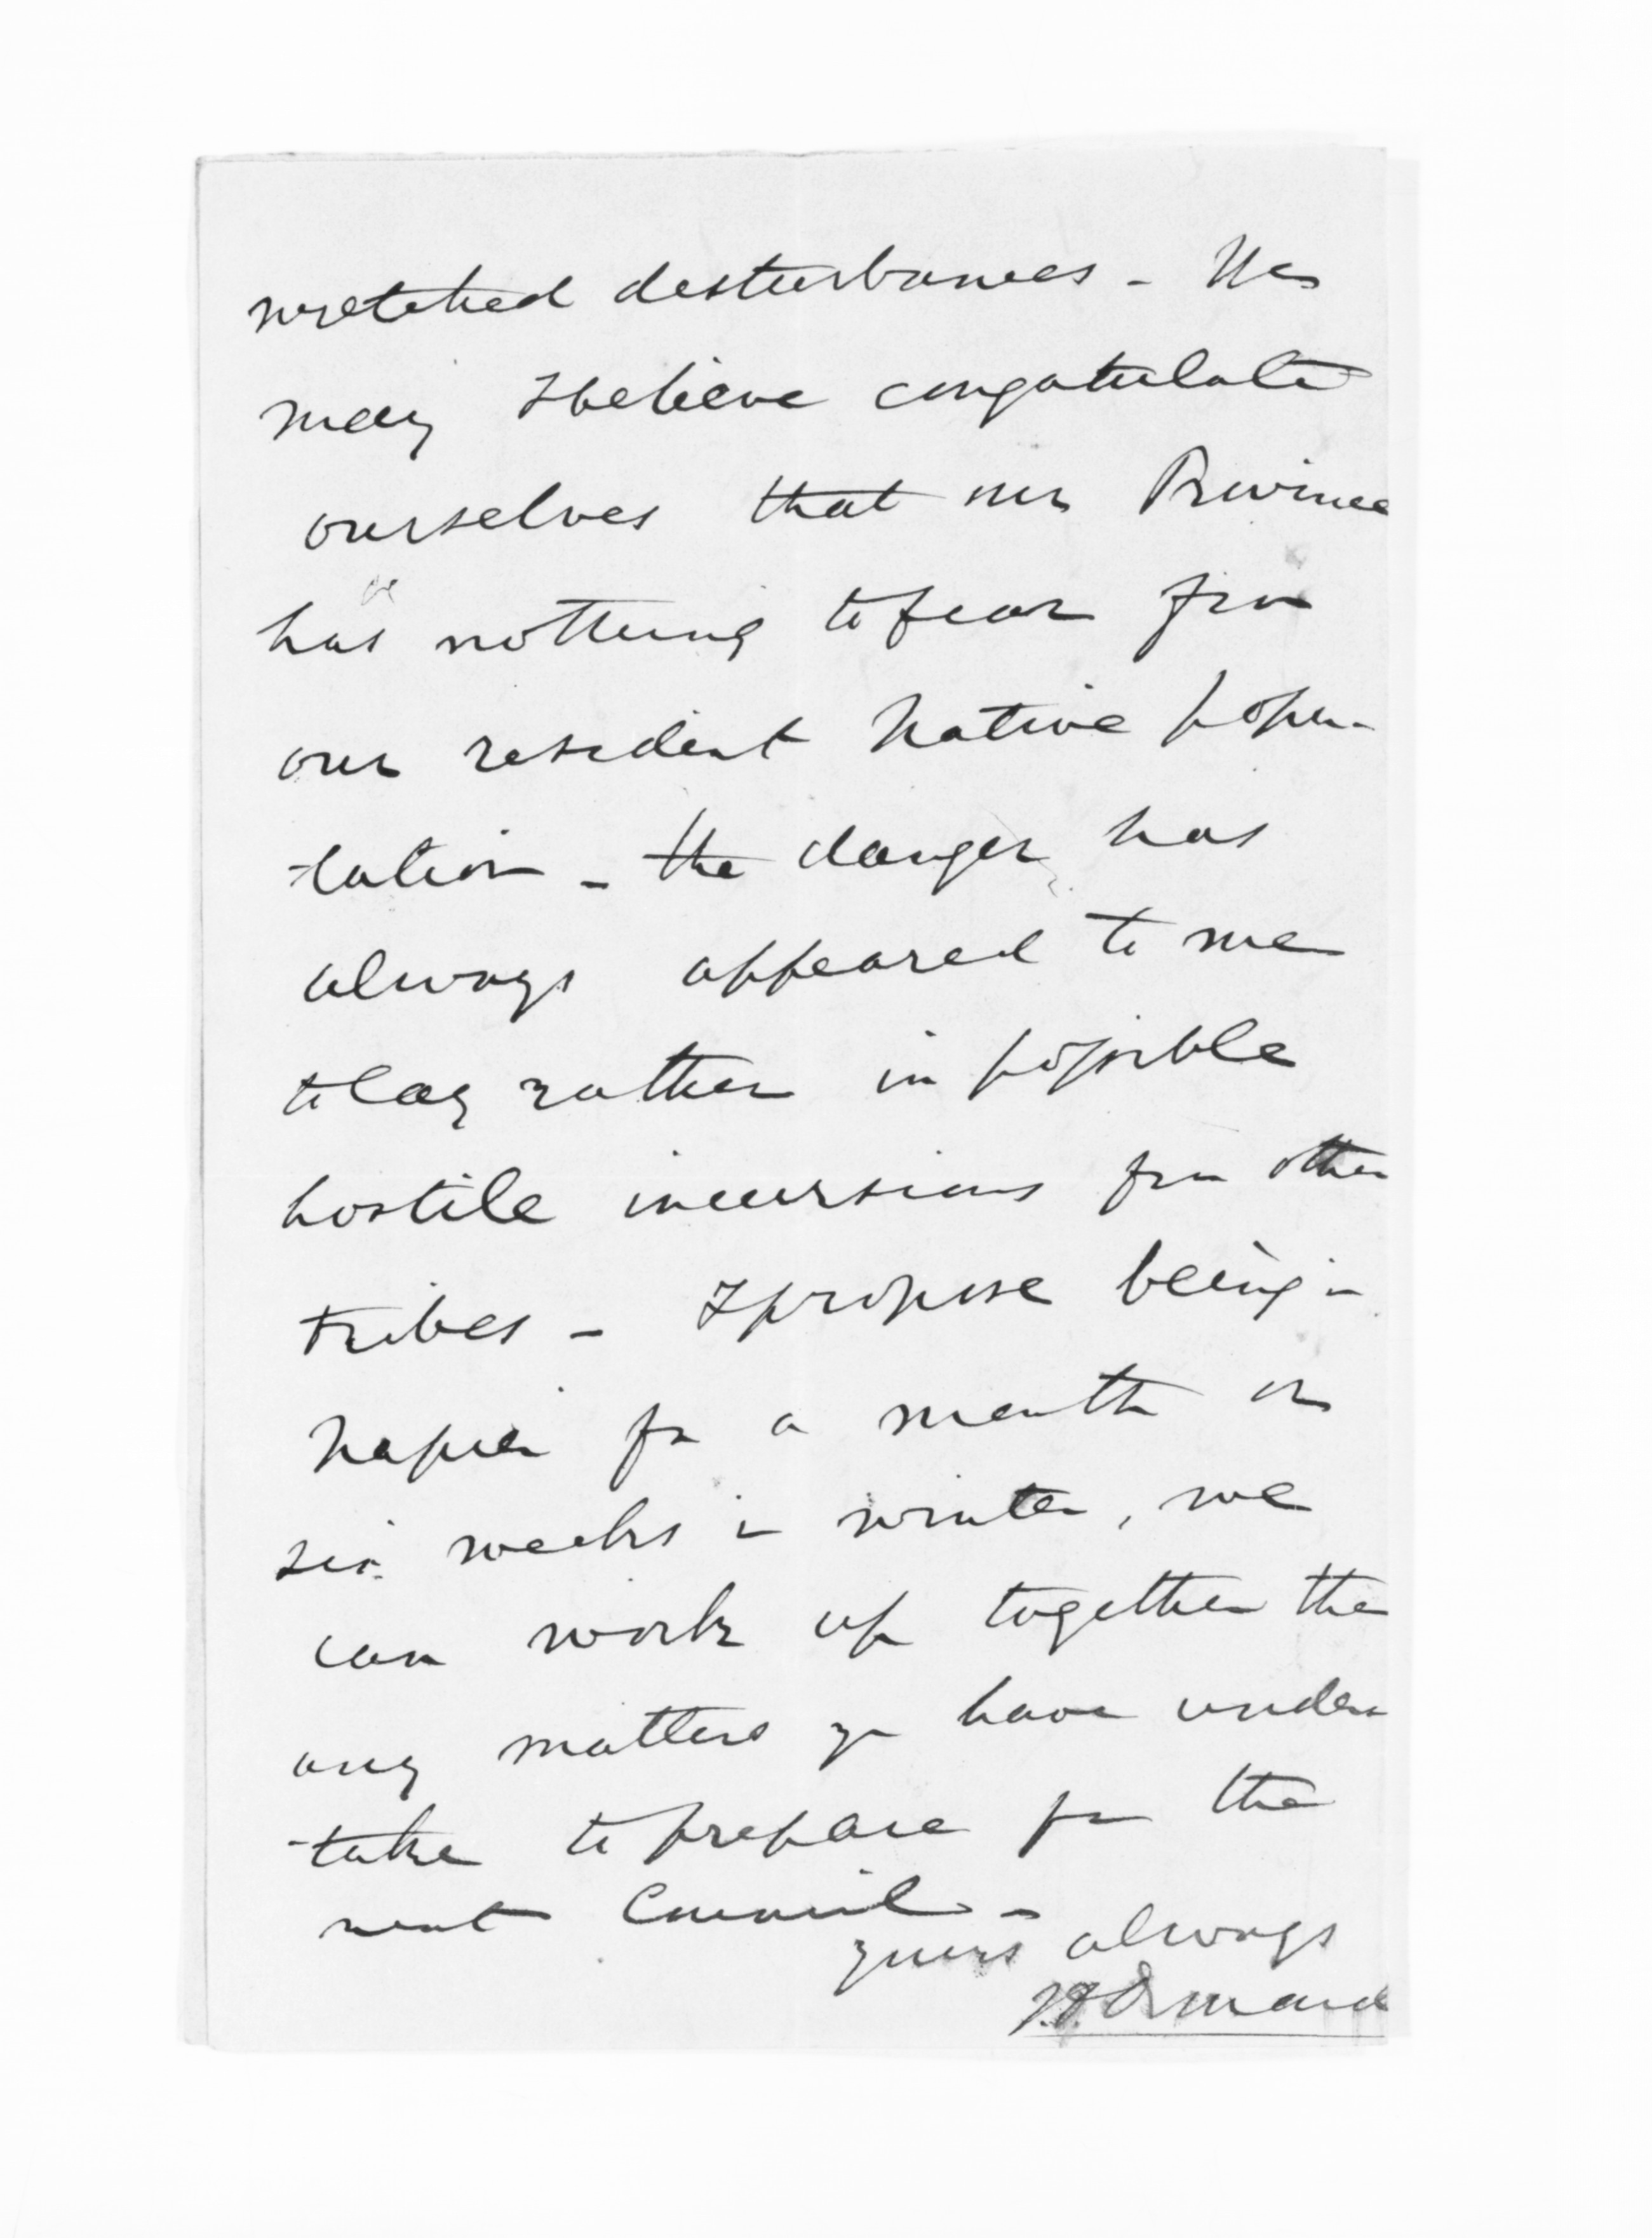 wretched disturbances - We
may I believe congratulate
ourselves that our Province
has nothing to fear from
our resident Native popu-
-lation - the danger has
always appeared to me
to lay rather in possible
hostile incursions from other
tribes - I propose being in
Napier for a month or
six weeks in winter, we
can work up together then
any matters you have under
-take to prepare for the
next Council -
yours always
J.D. Ormond